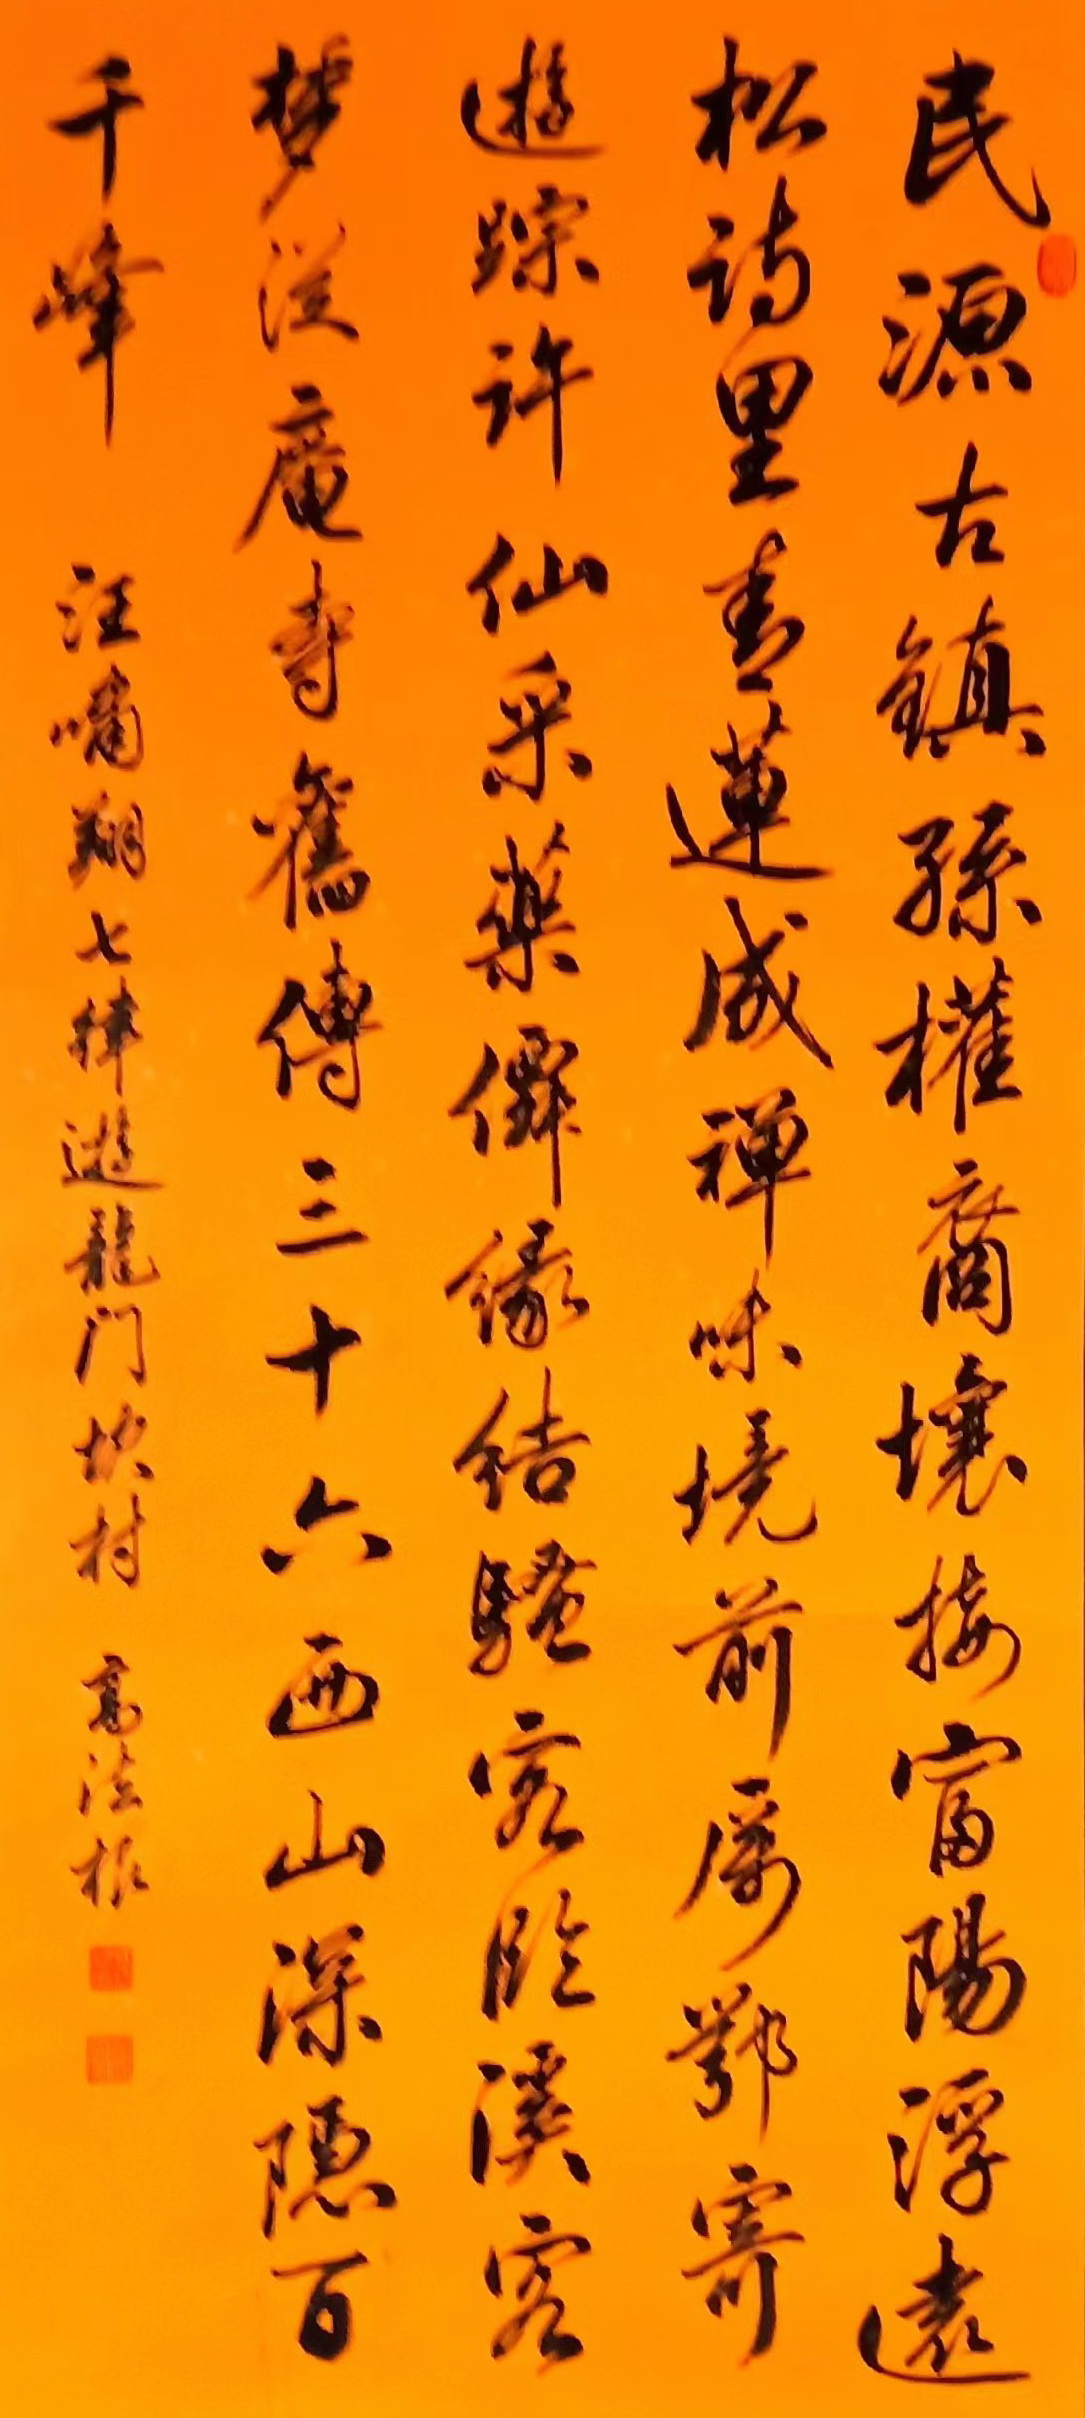 民源古鎮孫權裔壤接富陽浮遠
松詩里青蓮成禪味境前屬鄂寄
遊踪許仙采藥僻緣結騷客臨溪客
夢從庵寺舊傳三十六西山深隱百
千峰 汪嘯翔七律遊龍门坎村 高法根